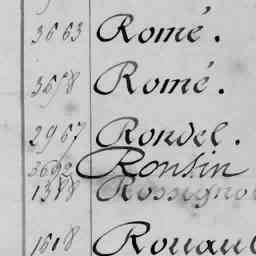 3663 Romé.
3658 Romé.
2967 Rondel.
3692 Ronsin
1388 Rossignol
1618 Rouaul